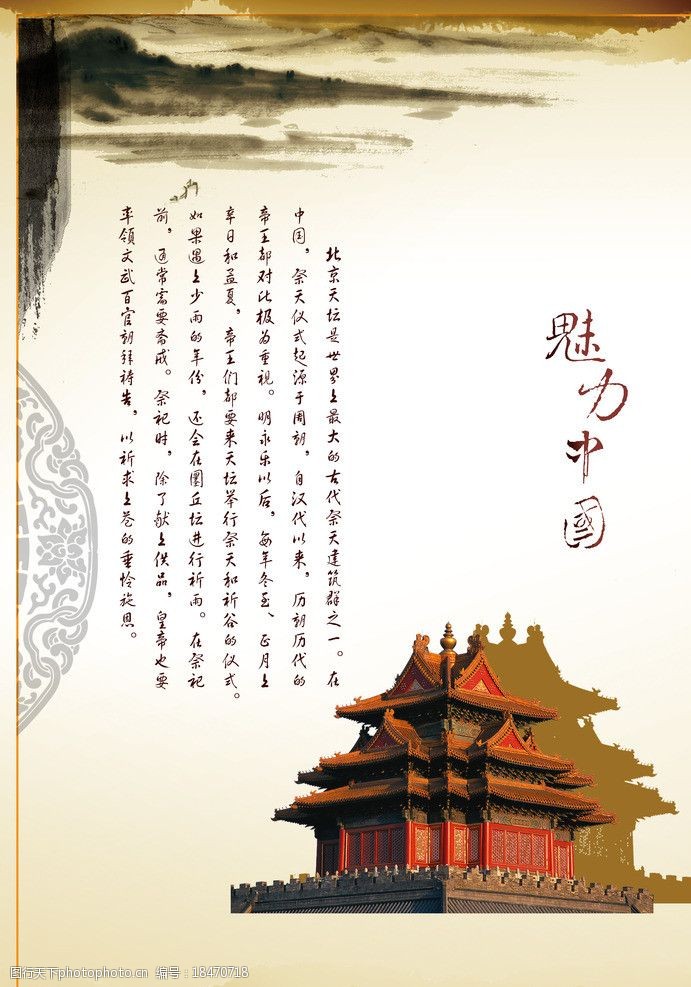 魅力中國
北京天坛是世界上最大的古代祭天建筑群之一。在
中国，祭天仪式起源于周朝，自汉代以来，历朝历代的
帝王都对此极为重视。明永乐以后，每年冬至、正月上
辛日和孟夏，帝王们都要来天坛举行祭天和祈谷的仪式。
如果遇上少雨的年份，还会在圜丘坛进行祈雨。在祭祀
前，通常需要斋戒。祭祀时，除了献上供品，皇帝也要
率领文武百官朝拜祷告，以祈求上苍的垂怜施恩。
图行天下photophoto.cn 编号：18470718